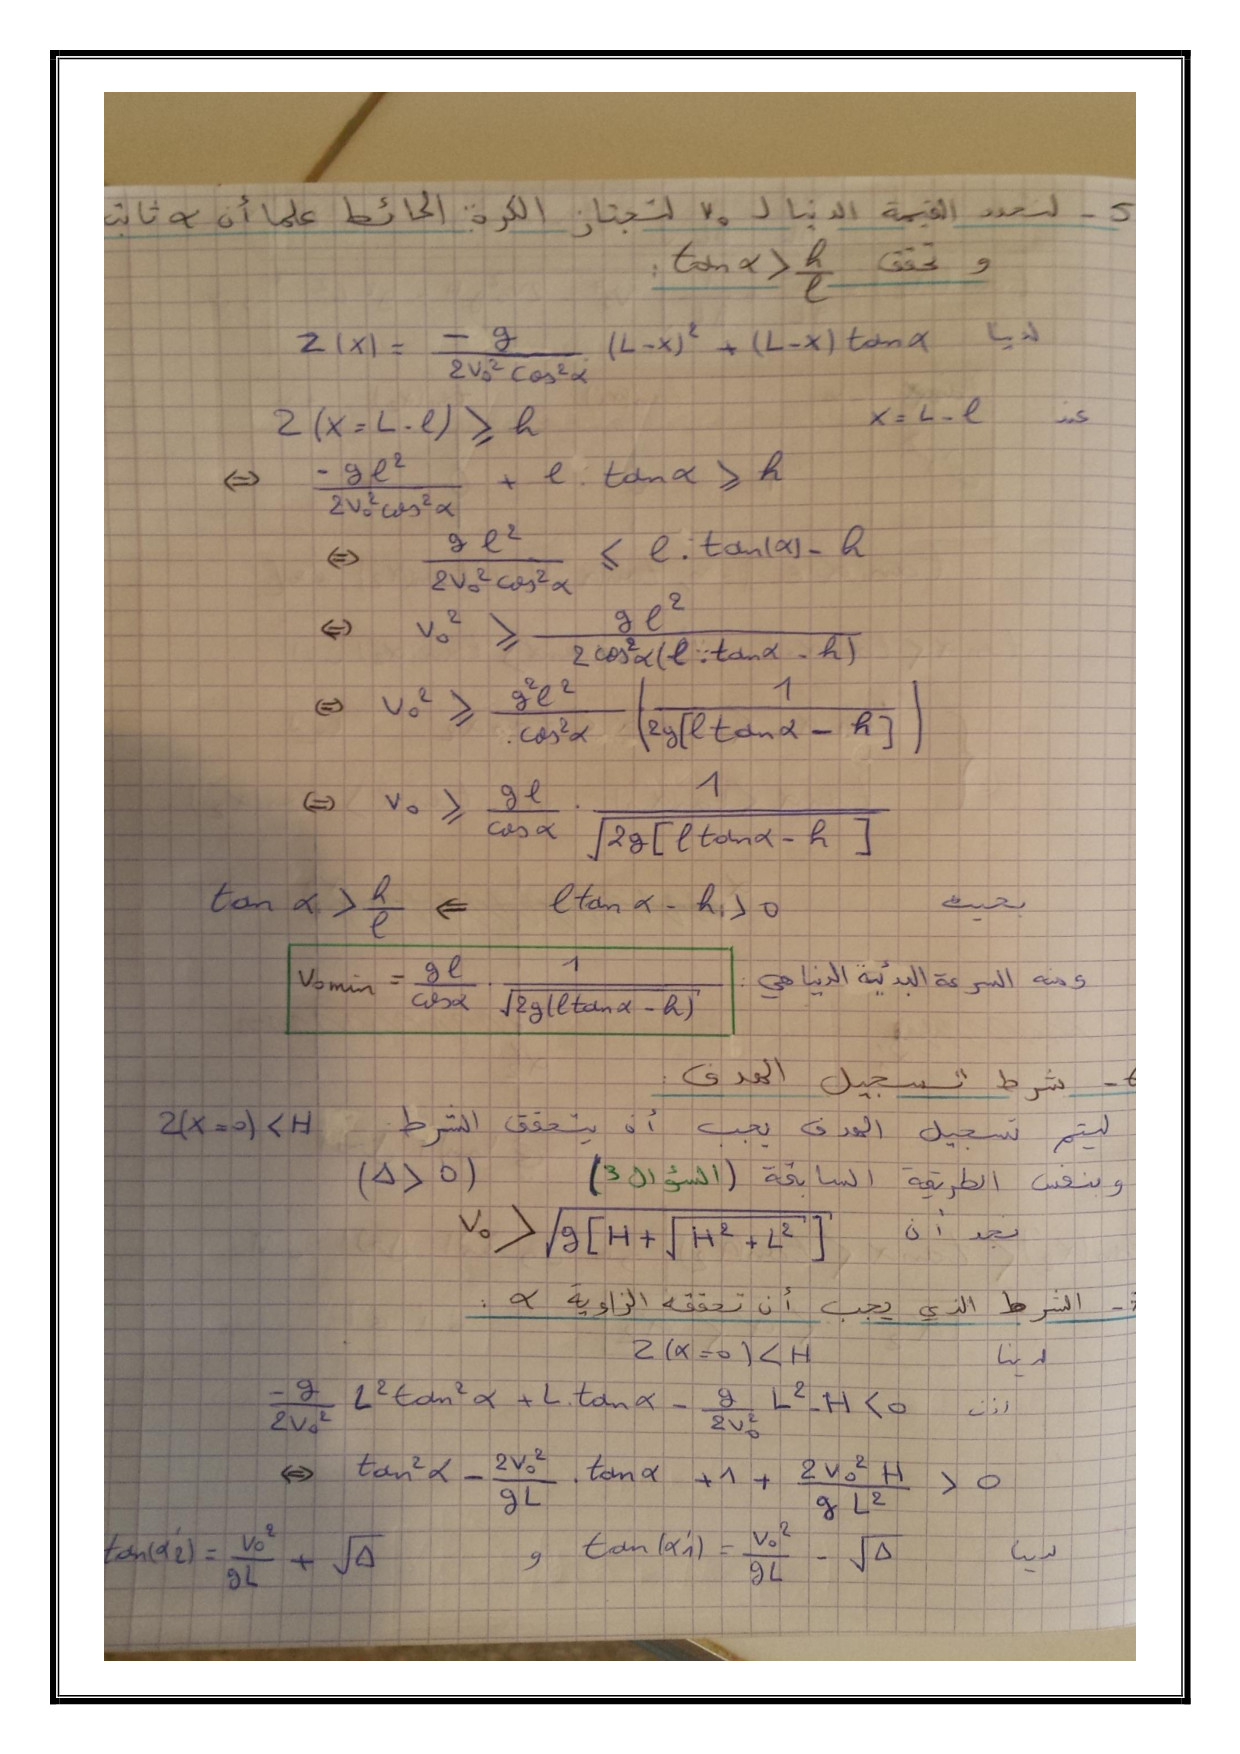 5 - لنحدد القيمة الدنيا لـ v₀ لتجتاز الكرة الحائط علما أن α ثابتة
و تحقق tanα > h/ℓ :
لدينا Z(x) = -g/(2v₀²cos²α) (L-x)² + (L-x) tanα
عند x = L-ℓ Z(x = L-ℓ) ⩾ h
⇔ -gℓ²/(2v₀²cos²α) + ℓ. tanα ⩾ h
⇔ gℓ²/(2v₀²cos²α) ⩽ ℓ.tan(α) - h
⇔ v₀² ⩾ gℓ²/(2cos²α(ℓ.tanα - h))
⇔ v₀² ⩾ g²ℓ²/cos²α (1/(2g[ℓtanα - h]))
⇔ v₀ ⩾ gℓ/cosα . 1/√(2g[ℓtanα - h])
بحيث ℓtanα - h > 0 ⇐ tanα > h/ℓ
ومنه السرعة البدئية الدنيا هي : v₀min = gℓ/cosα . 1/√(2g(ℓtanα - h))
6 - شرط تسجيل الهدف :
ليتم تسجيل الهدف يجب أن يتحقق الشرط Z(x=0) < H
وبنفس الطريقة السابقة (السؤال 3) (Δ > 0)
نجد أن v₀ > √(g[H + √(H² + L²)])
7 - الشرط الذي يجب أن تحققه الزاوية α :
لدينا Z(x=0) < H
اذن -g/(2v₀²) L²tan²α + L.tanα - g/(2v₀²) L² - H < 0
⇔ tan²α - 2v₀²/(gL) . tanα + 1 + 2v₀²H/(gL²) > 0
لدينا tan(α'1) = v₀²/(gL) - √Δ و tan(α'2) = v₀²/(gL) + √Δ